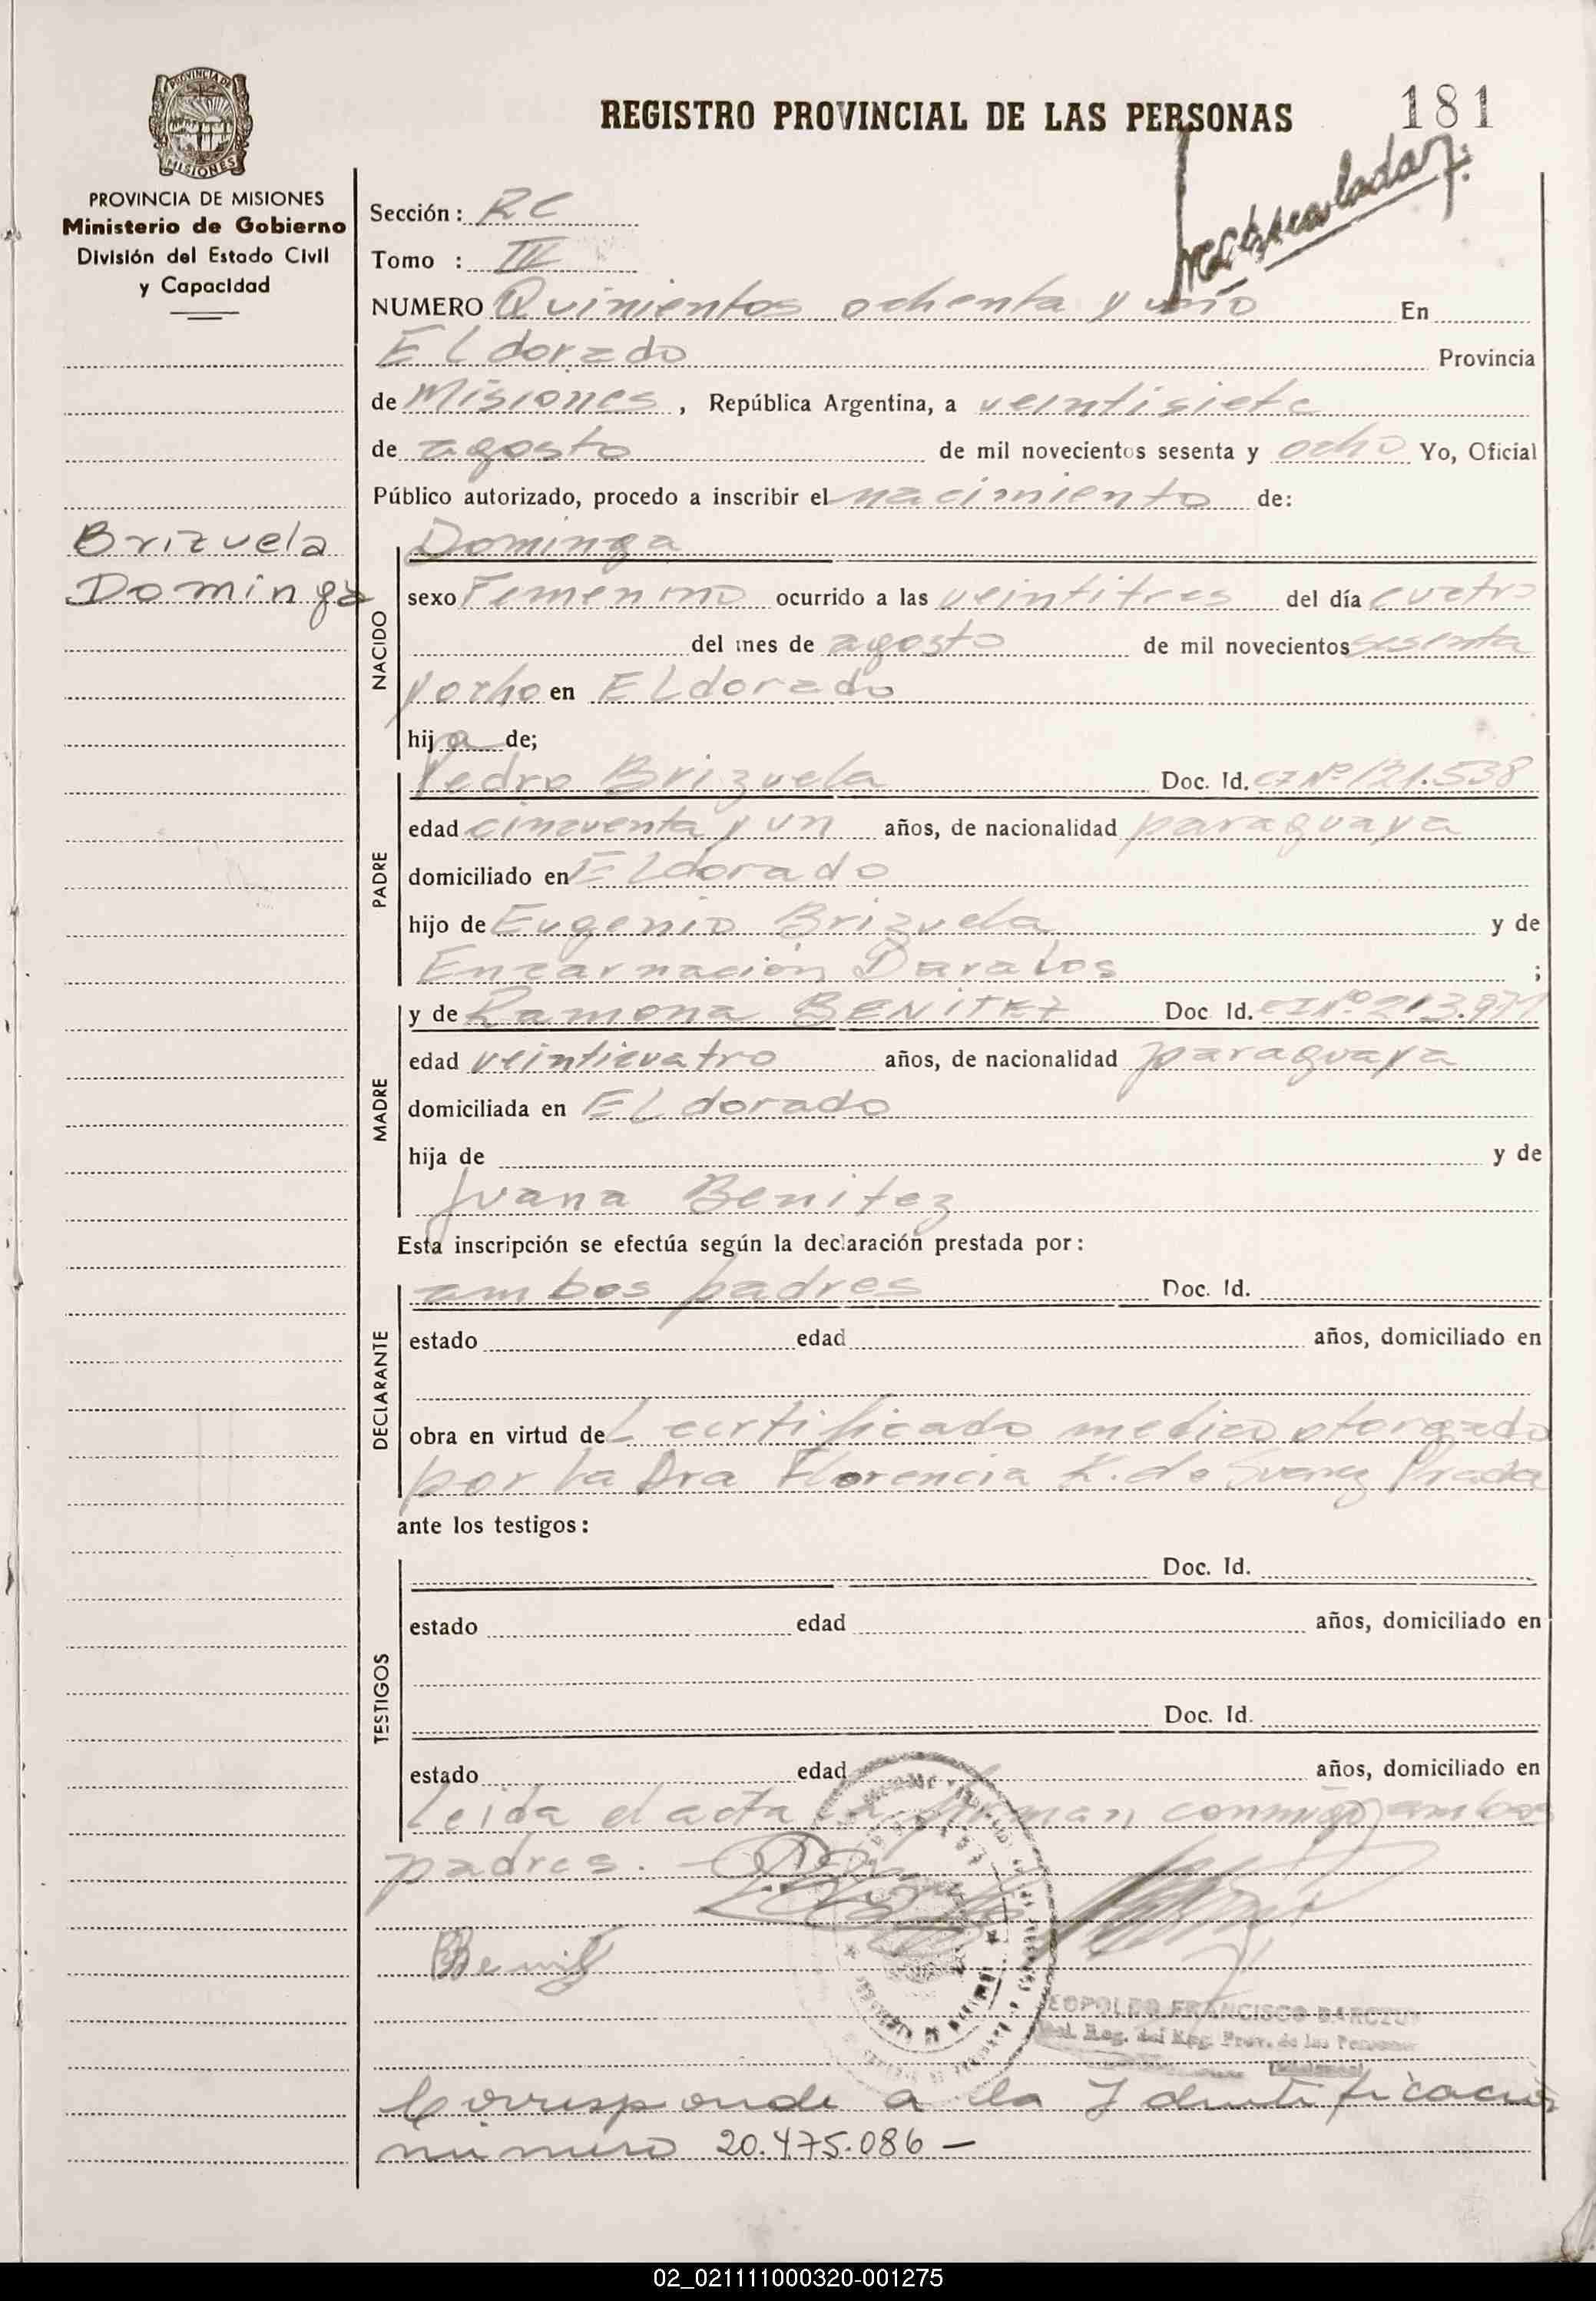 REGISTRO PROVINCIAL DE LAS PERSONAS
181
PROVINCIA DE MISIONES
PROVINCIA DE MISIONES
Ministerio de Gobierno
División del Estado Civil
y Capacidad
Sección: RC
Tomo : IV
NUMERO Quinientos ochenta y uno En
ELdorado Provincia
de Misiones, República Argentina, a veintisiete
de agosto de mil novecientos sesenta y ocho Yo, Oficial
Público autorizado, procedo a inscribir el nacimiento de:
Brizuela
Dominga
NACIDO
Dominga
sexo Femenino ocurrido a las veintitres del día cuatro
del mes de agosto de mil novecientos sesenta
y ocho en ELdorado
hija de;
PADRE
Pedro Brizuela Doc. Id. CI Nº 121.538
edad cincuenta y un años, de nacionalidad paraguaya
domiciliado en ELdorado
hijo de Eugenio Brizuela y de
Encarnación Davalos ;
MADRE
y de Ramona BENITEZ Doc Id. CI Nº 213.971
edad veinticuatro años, de nacionalidad paraguaya
domiciliada en ELdorado
hija de y de
Juana Benitez
Esta inscripción se efectúa según la declaración prestada por:
DECLARANTE
ambos padres Doc. Id.
estado edad años, domiciliado en
obra en virtud del certificado medico otorgado
por la Dra Florencia K. de Suarez Prada
ante los testigos:
TESTIGOS
Doc. Id.
estado edad años, domiciliado en
Doc. Id.
estado edad años, domiciliado en
Leida el acta la firman conmigo ambos
padres.
LEOPOLDO FRANCISCO
Reg. del Reg. Prov. de las Personas
Corresponde a la Identificación
numero 20.475.086 —
02_021111000320-001275